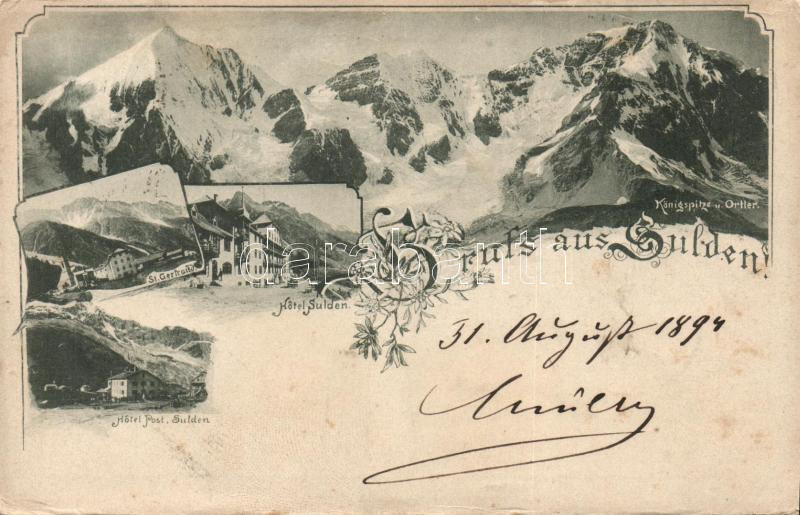 Königspitze u. Ortler.
Gruss aus Sulden!
St. Gertraud
Hôtel Sulden.
Hôtel Post, Sulden
31. August 1894
darabanth